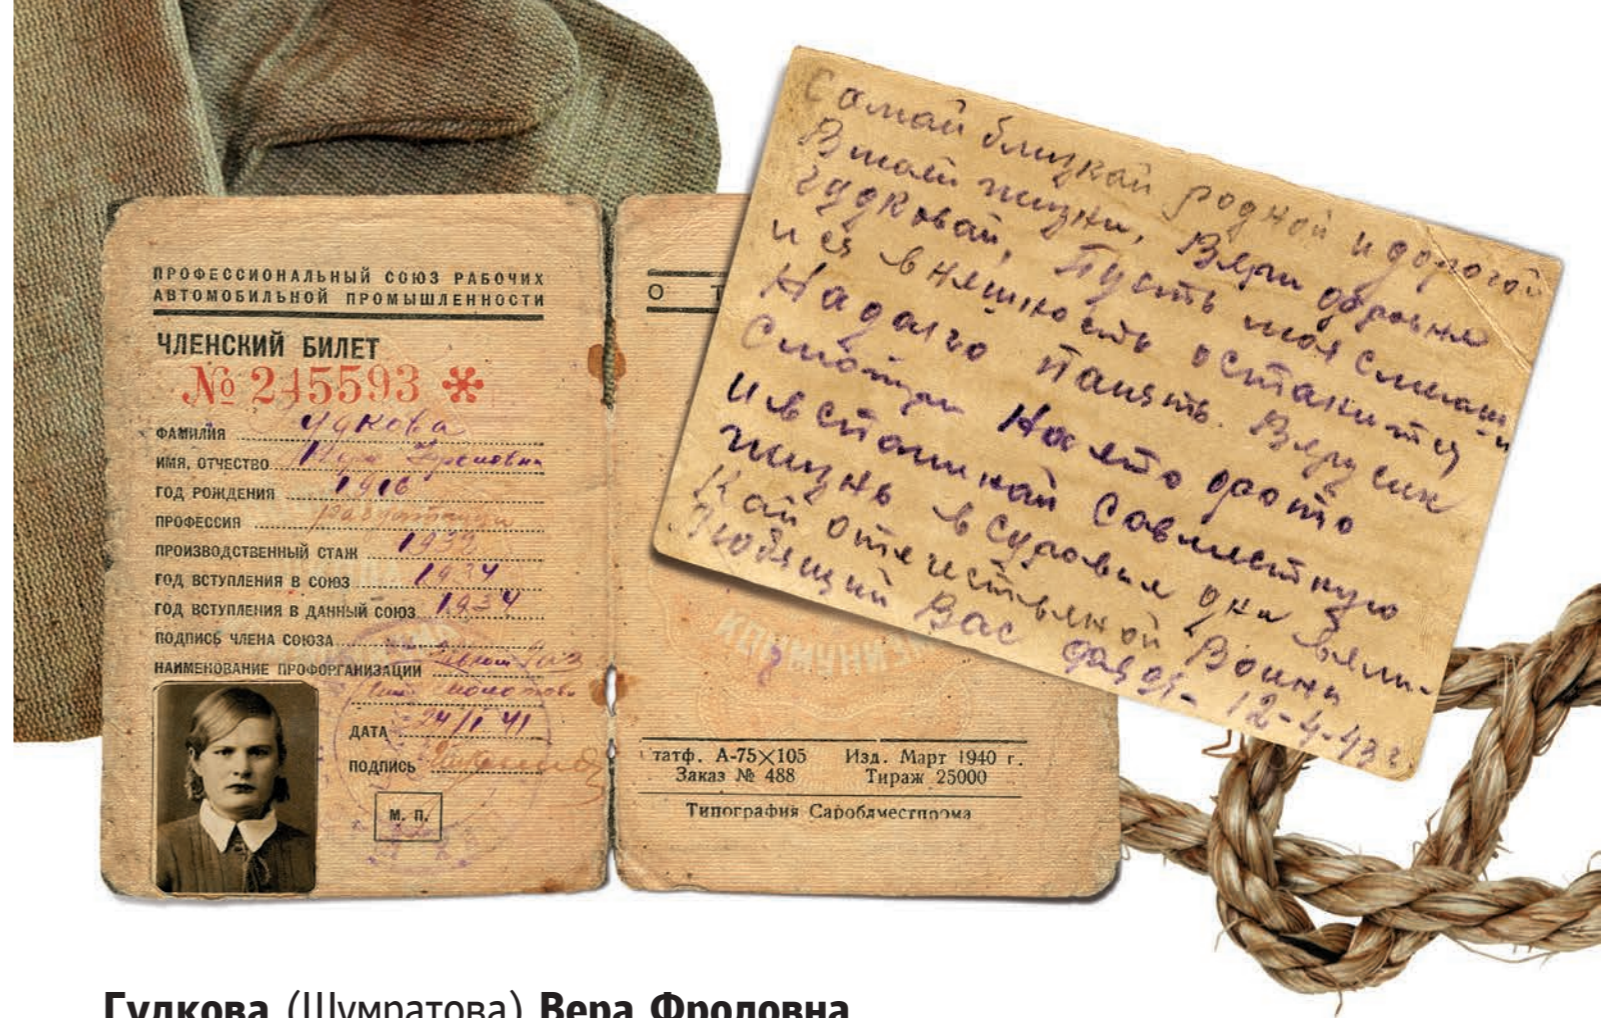 ПРОФЕССИОНАЛЬНЫЙ СОЮЗ РАБОЧИХ
АВТОМОБИЛЬНОЙ ПРОМЫШЛЕННОСТИ
ЧЛЕНСКИЙ БИЛЕТ
№ 245593 *
ФАМИЛИЯ Гудкова
ИМЯ, ОТЧЕСТВО Вера Фроловна
ГОД РОЖДЕНИЯ 1916
ПРОФЕССИЯ
ПРОИЗВОДСТВЕННЫЙ СТАЖ
ГОД ВСТУПЛЕНИЯ В СОЮЗ 1934
ГОД ВСТУПЛЕНИЯ В ДАННЫЙ СОЮЗ 1934
ПОДПИСЬ ЧЛЕНА СОЮЗА
НАИМЕНОВАНИЕ ПРОФОРГАНИЗАЦИИ
ДАТА 24/I 41
ПОДПИСЬ
М. П.
О Т
КОММУНИЗ
татф. А-75×105 Изд. Март 1940 г.
Заказ № 488 Тираж 25000
Типография Саробдместпрома
Самай близкай родной и дорогой
В маей жизни, Вери
Гудковай, Пусть моя
и ея внешность останиться
Надалго Память. Верусик
Смотри На ето фото
И вспаминай Савместную
жизнь в суровыи дни вели-
Кай отечествяной Воины
Любящий Вас 12-4-43 г.
Гудкова (Шумратова) Вера Фроловна